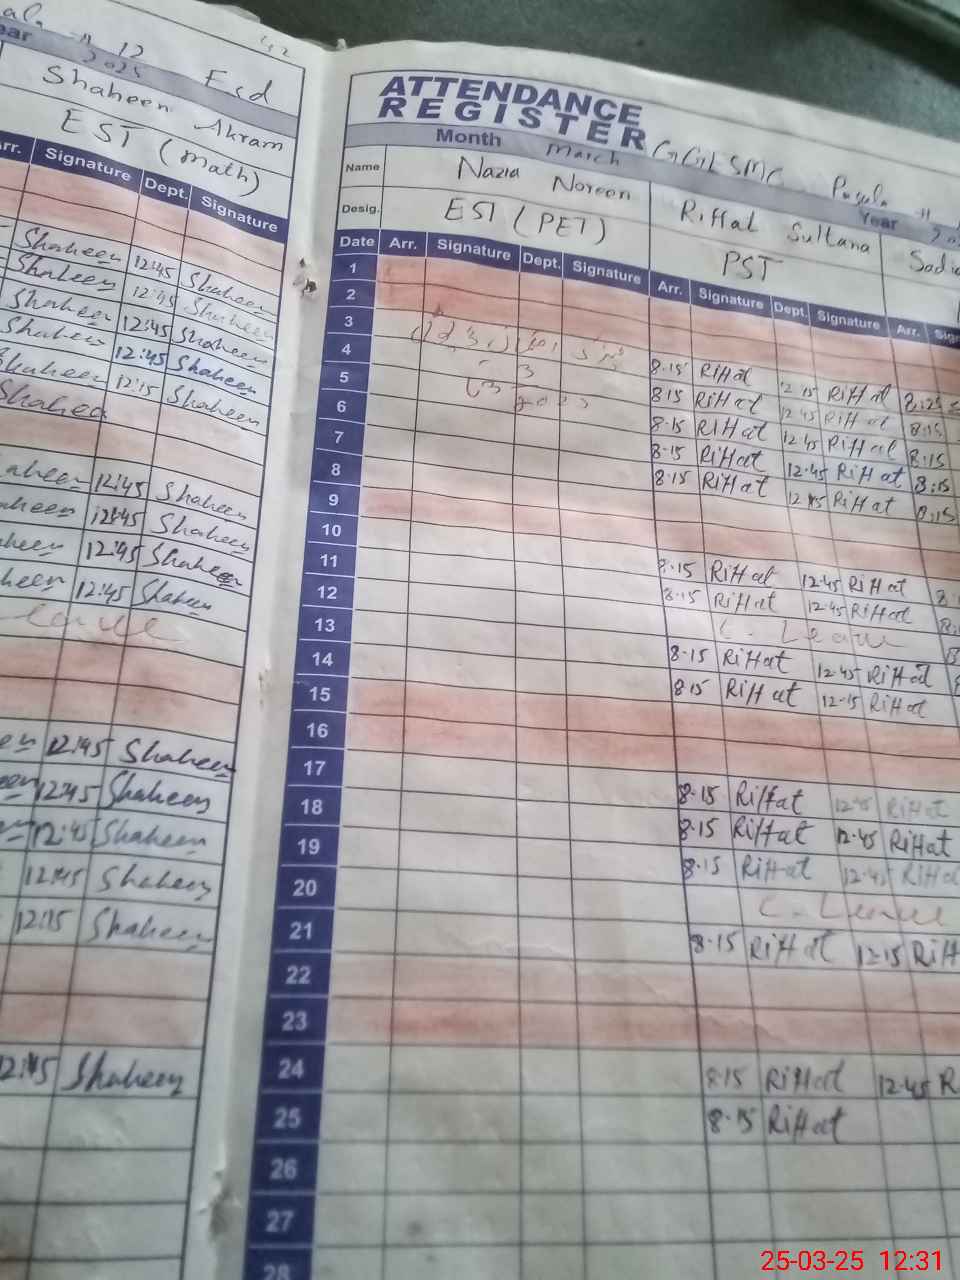 12 Esd
2025
Shaheen Akram
EST (Math)
Arr. Signature Dept. Signature
Shaheen 12:45 Shaheen
Shaheen 12:45 Shaheen
Shaheen 12:45 Shaheen
Shaheen 12:45 Shaheen
Shaheen 12:15 Shaheen
Shaheen
12:45 Shaheen
12:45 Shaheen
12:45 Shaheen
12:45 Shaheen
Leave
12:45 Shaheen
12:45 Shaheen
12:45 Shaheen
12:45 Shaheen
12:15 Shaheen
12:45 Shaheen
ATTENDANCE
REGISTER
Month March Year
Name Nazia Noreen Riffat Sultana Sadia
Desig. EST (PET) PST
Date Arr. Signature Dept. Signature Arr. Signature Dept. Signature Arr.
1
2
3
4 8.15 Riffat 12.15 Riffat 8:25
5 8.15 Riffat 12.45 Riffat 8:15
6 8.15 Riffat 12.45 Riffat 8:15
7 8.15 Riffat 12.45 Riffat 8:15
8 8.15 Riffat 12.45 Riffat 8:15
9
10
11 8.15 Riffat 12.45 Riffat
12 8.15 Riffat 12.45 Riffat
13 C. Leave
14 8.15 Riffat 12.45 Riffat
15 8.15 Riffat 12.15 Riffat
16
17
18 8.15 Riffat 12.45 Riffat
19 8.15 Riffat 12.45 Riffat
20 8.15 Riffat 12.45 Riffat
C. Leave
21 8.15 Riffat 12.15
22
23
24 8.15 Riffat 12.45
25 8.15 Riffat
26
27
28
25-03-25 12:31